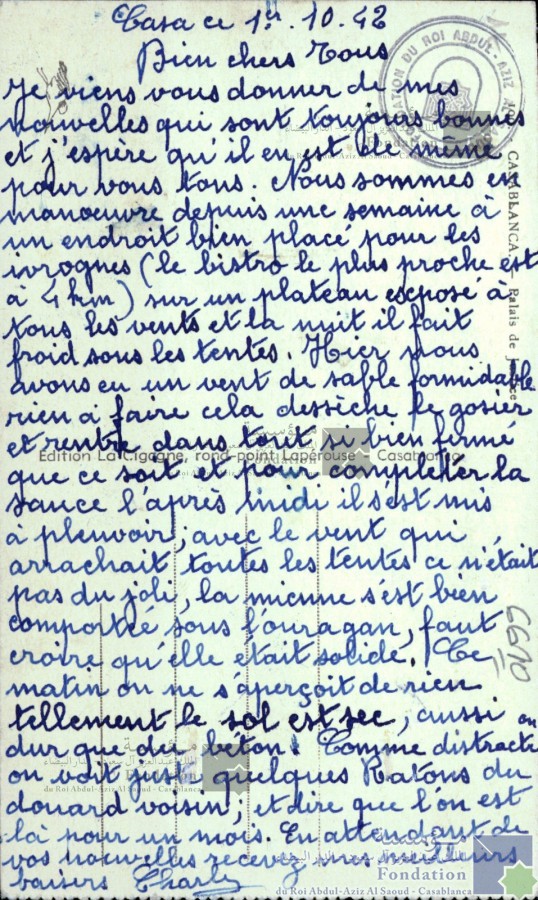 Casa ce 1er. 10. 42
Bien chers Tous
Je viens vous donner de mes
nouvelles qui sont toujours bonnes
et j'espère qu'il en est de même
pour vous tous. Nous sommes en
manœuvre depuis une semaine à
un endroit bien placé pour les
ivrognes (le bistro le plus proche est
à 4 km) sur un plateau exposé à
tous les vents et la nuit il fait
froid sous les tentes. Hier nous
avons eu un vent de sable formidable
rien à faire cela dessèche le gosier
et rentre dans tout si bien fermé
que ce soit et pour complèter la
sauce l'après midi il s'est mis
à pleuvoir; avec le vent qui
arrachait toutes les tentes ce n'était
pas du joli, la mienne s'est bien
comportée sous l'ouragan, faut
croire qu'elle était solide. Ce
matin on ne s'aperçoit de rien
tellement le sol est sec, aussi
dur que du béton. Comme distract
on voit juste quelques Ratons du
douard voisin; et dire que l'on est
là pour un mois. En attendant de
vos nouvelles recevez mes meilleurs
baisers Charly
CASABLANCA. - Palais de justice
Edition La Cigogne, rond-point Lapérouse - Casablanca
6610
FONDATION DU ROI ABDUL-AZIZ
Fondation
du Roi Abdul-Aziz Al Saoud - Casablanca